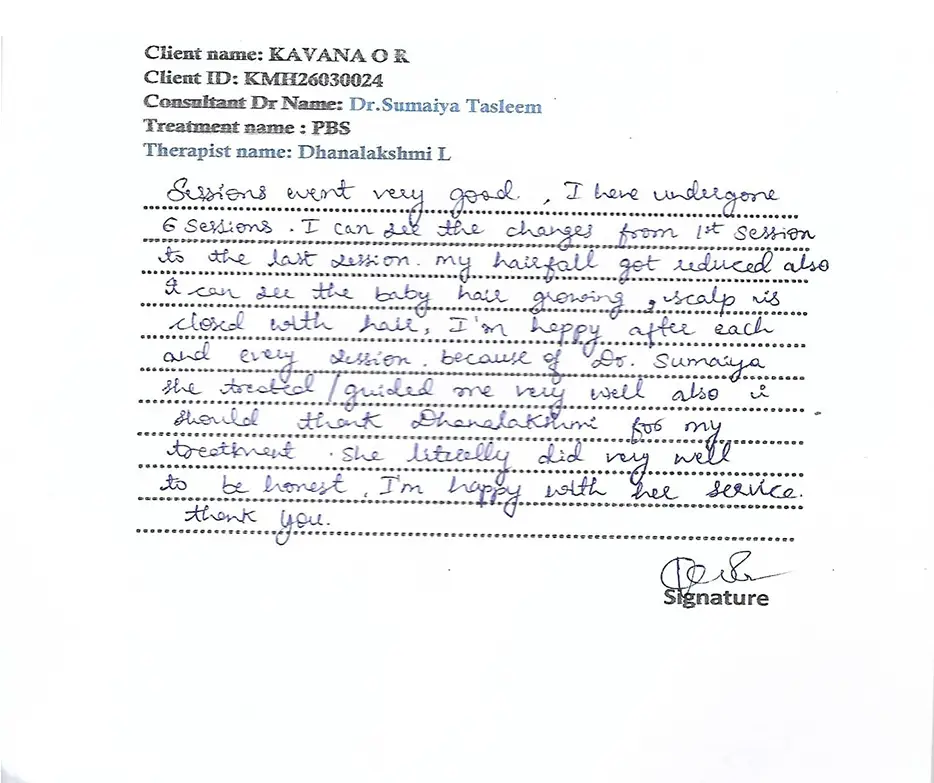 Client name: KAVANA O R
Client ID: KMH26030024
Consultant Dr Name: Dr.Sumaiya Tasleem
Treatment name : PBS
Therapist name: Dhanalakshmi L
Sessions went very good. , I have undergone
6 sessions. I can see the changes from 1st session
to the last session. my hairfall got reduced also
I can see the baby hair growing , scalp is
closed with hair, I'm happy after each
and every session. because of Dr. Sumaiya
she treated / guided me very well also i
should thank Dhanalakshmi for my
treatment . she literally did very well
to be honest, I'm happy with her service.
thank you.
Signature